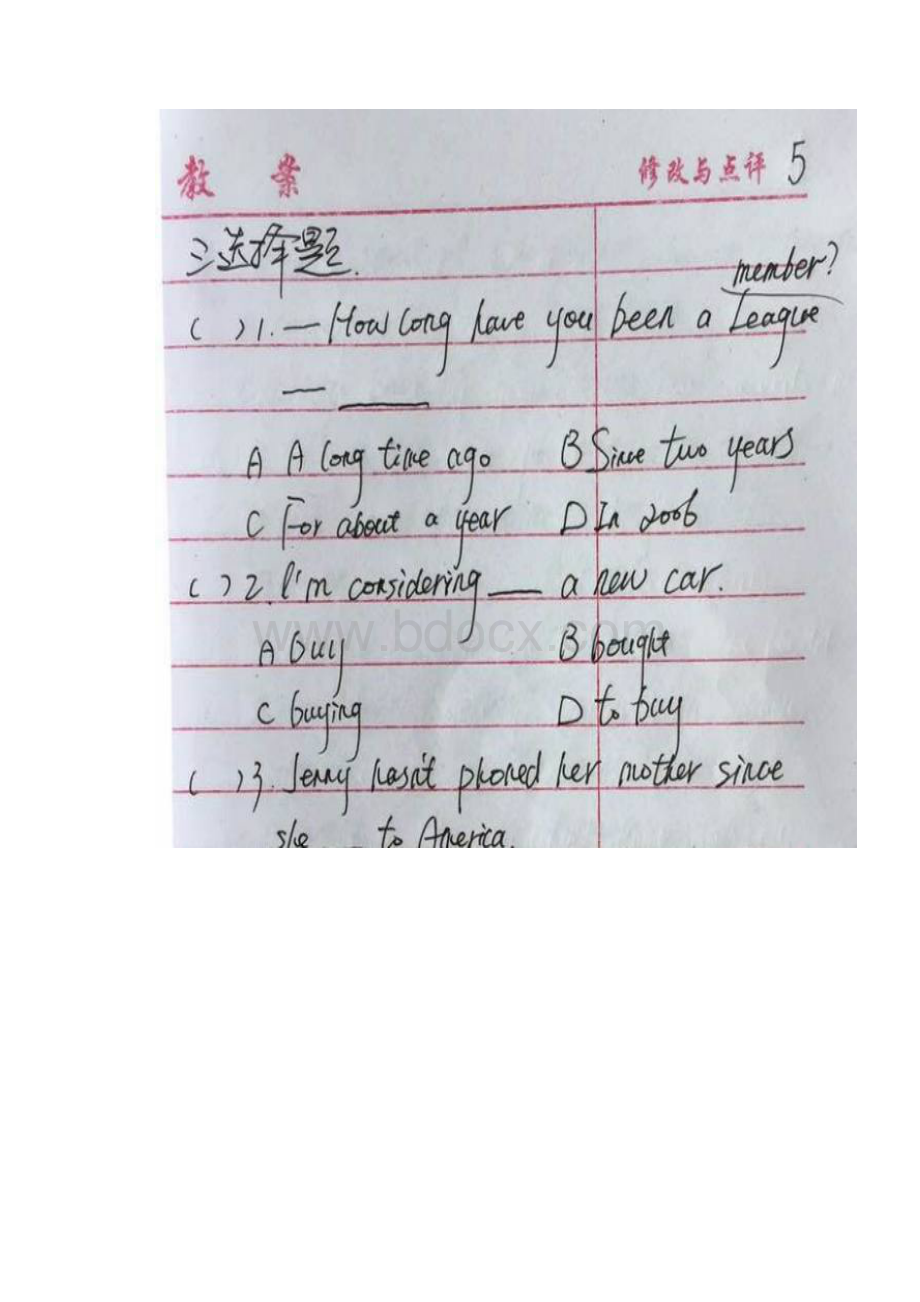 教 案 修改与点评 5
三选择题.
member?
( )1. — How long have you been a League
— ____
A A long time ago B Since two years
C For about a year D In 2006
( )2. I'm considering ___ a new car.
www.bdocx.com
A buy B bought
C buying D to buy
( )3. Jenny hasn't phoned her mother since
she ___ to America.